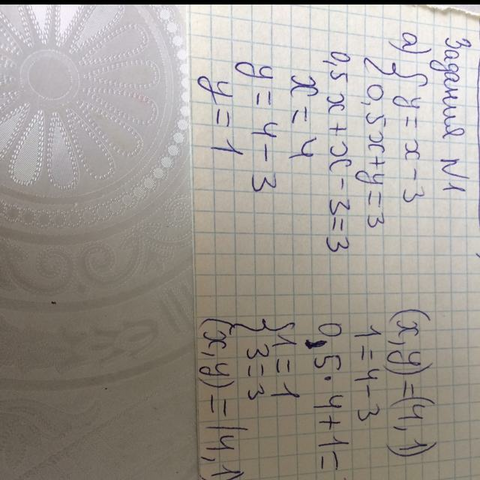 Задания №1
а) { y = x - 3
0,5x + y = 3
0,5x + x - 3 = 3
x = 4
y = 4 - 3
y = 1
(x, y) = (4, 1)
1 = 4 - 3
0,5 · 4 + 1 =
{ 1 = 1
3 = 3
(x, y) = (4, 1